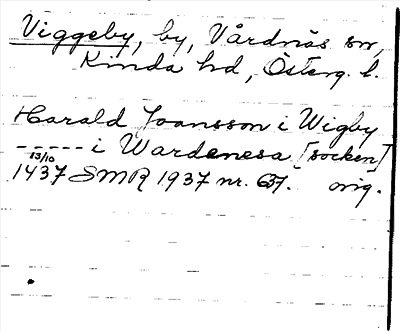 Viggeby, by, Vårdnäs sn,
Kinda hd, Österg. l.
Harald Joansson i Wigby
----- i Wardenesa [socken]
13/10
1437 SMR 1937 nr. 637. orig.